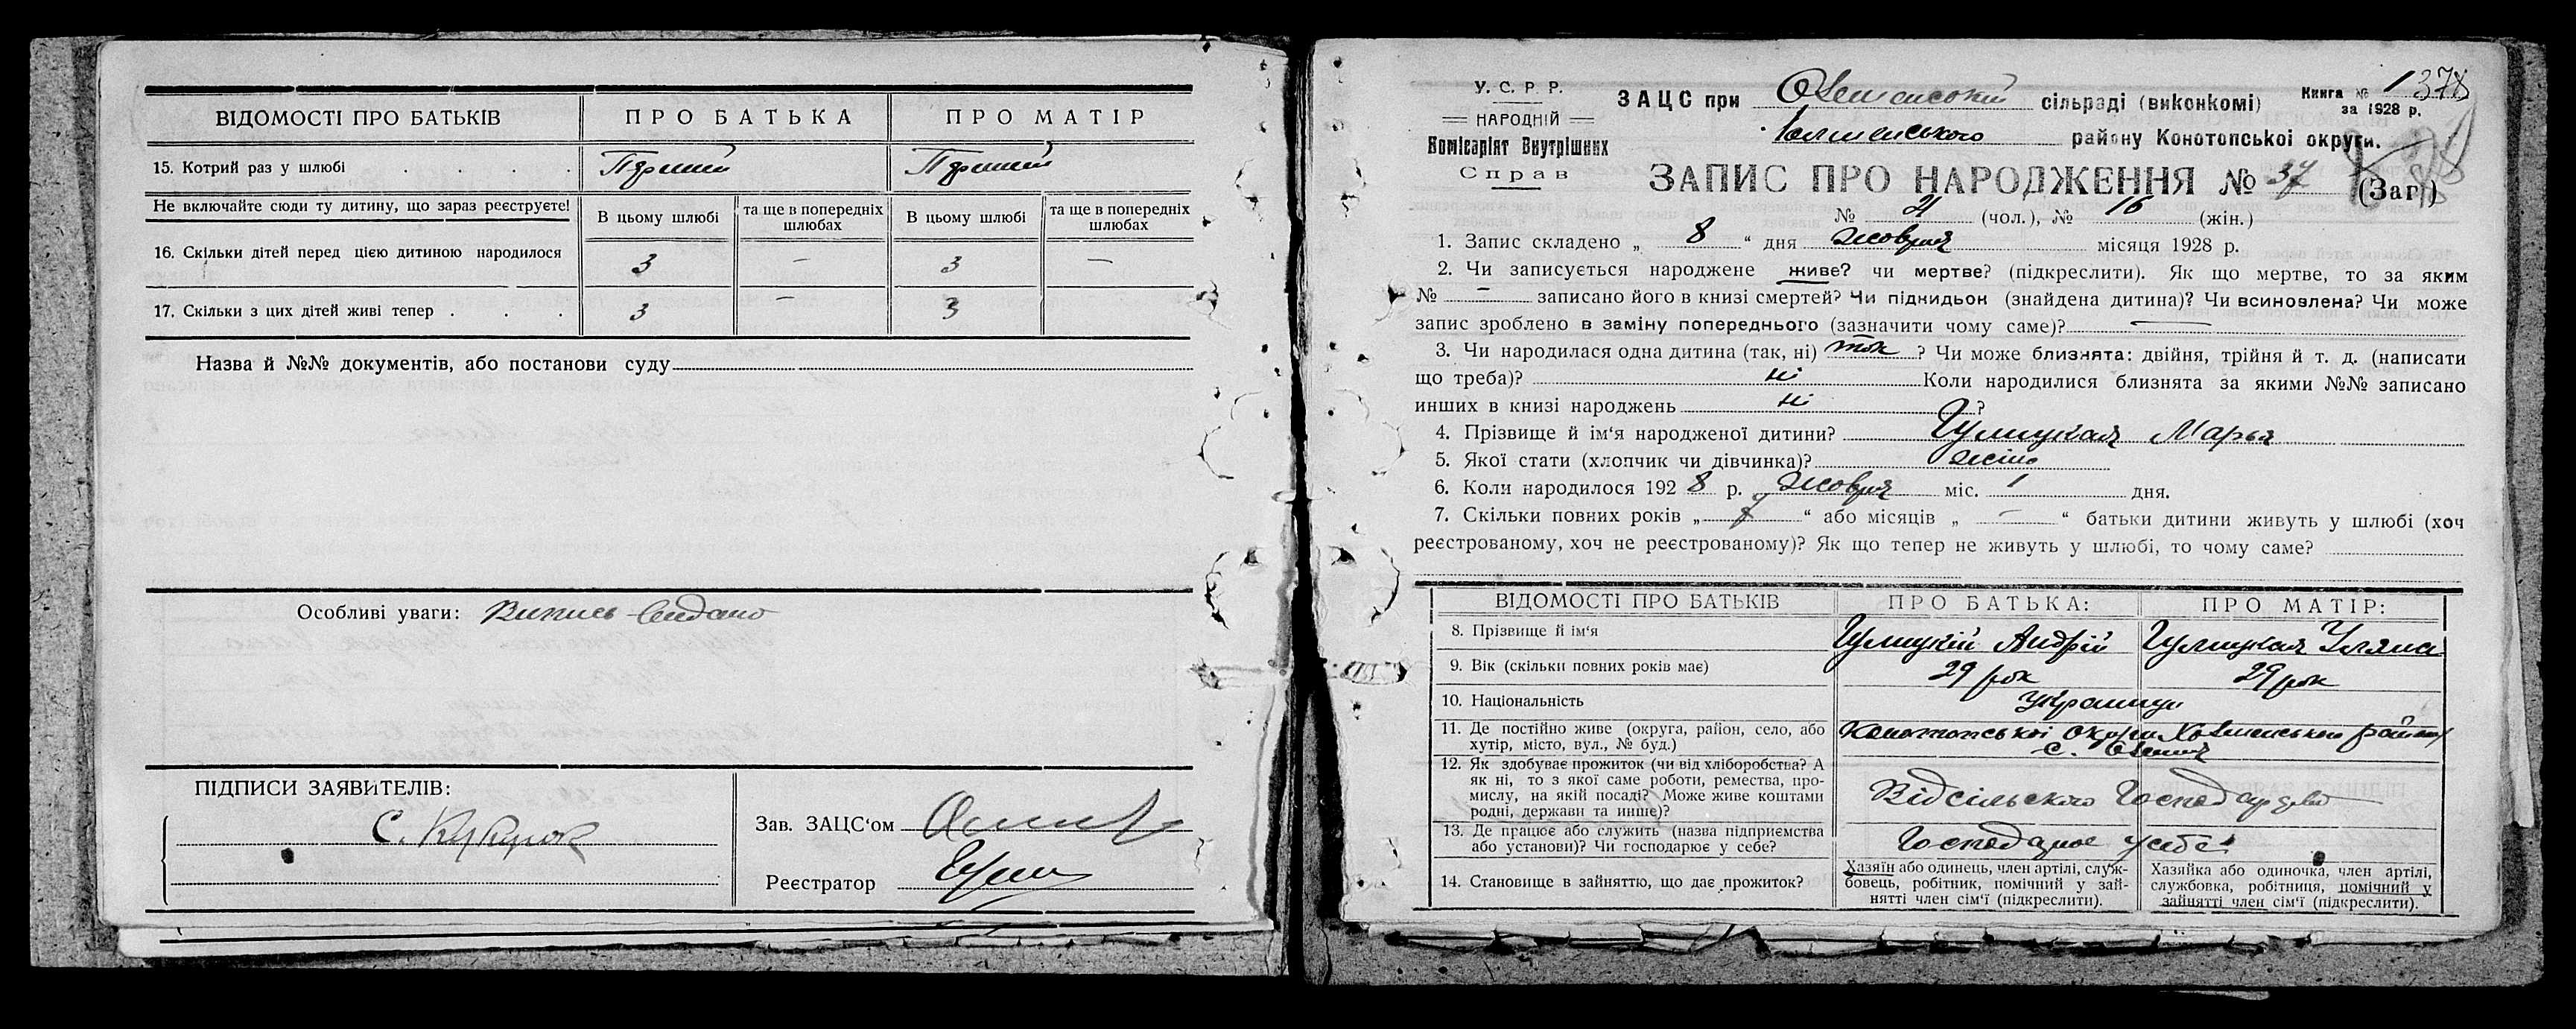 ВІДОМОСТІ ПРО БАТЬКІВ ПРО БАТЬКА ПРО МАТІР
15. Котрий раз у шлюбі . . . . Перший Перший
Не включайте сюди ту дитину, що зараз реєструєте! В цьому шлюбі та ще в попередніх шлюбах В цьому шлюбі та ще в попередніх шлюбах
16. Скільки дітей перед цією дитиною народилося 3 – 3 –
17. Скільки з цих дітей живі тепер . . . 3 – 3
Назва й №№ документів, або постанови суду
Особливі уваги: Випись видано
ПІДПИСИ ЗАЯВИТЕЛІВ:
С. Кукурок
Зав. ЗАЦС‘ом
Реєстратор
У. С. Р. Р.
НАРОДНІЙ
Комісаріят Внутрішних
Справ
ЗАЦС при сільраді (виконкомі)
району Конотопської округи.
Книга № 1 378
за 1928 р.
ЗАПИС ПРО НАРОДЖЕННЯ № 37 (Заг.)
№ 21 (чол.), № 16 (жін.)
1. Запис складено „ 8 “ дня жовтня місяця 1928 р.
2. Чи записується народжене живе? чи мертве? (підкреслити). Як що мертве, то за яким
№ – записано його в книзі смертей? Чи підкидьок (знайдена дитина)? Чи всиновлена? Чи може
запис зроблено в заміну попереднього (зазначити чому саме)? —
3. Чи народилася одна дитина (так, ні) так ? Чи може близнята: двійня, трійня й т. д. (написати
що треба)? ні Коли народилися близнята за якими №№ записано
инших в книзі народжень ні ?
4. Прізвище й ім‘я народженої дитини? Гулицкая Марья
5. Якої стати (хлопчик чи дівчинка)? жіно
6. Коли народилося 192 8 р. Жовтня міс. 1 дня.
7. Скільки повних років „ “ або місяців „ – “ батьки дитини живуть у шлюбі (хоч
реєстрованому, хоч не реєстрованому)? Як що тепер не живуть у шлюбі, то чому саме?
ВІДОМОСТІ ПРО БАТЬКІВ ПРО БАТЬКА: ПРО МАТІР:
8. Прізвище й ім‘я Гулицкій Андрій Гулицкая Уляна
9. Вік (скільки повних років має) 29 рок 29 рок
10. Національність Українці
11. Де постійно живе (округа, район, село, або Конотопської Округи району
хутір, місто, вул., № буд.) с.
12. Як здобуває прожиток (чи від хліборобства? А
як ні, то з якої саме роботи, ремества, про-
мислу, на якій посаді? Може живе коштами Відсільского Господарства
родні, держави та инше)?
13. Де працює або служить (назва підприємства
або установи)? Чи господарює у себе? Господарює у себе
14. Становище в зайняттю, що дає прожиток?
Хазяїн або одинець, член артілі, служ-
бовець, робітник, помічний у зай-
нятті член сім‘ї (підкреслити).
Хазяйка або одиночка, член артілі,
службовка, робітниця, помічний у
зайнятті член сім‘ї (підкреслити).